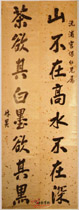 山不在高水不在深
茶欲其白墨欲其黑